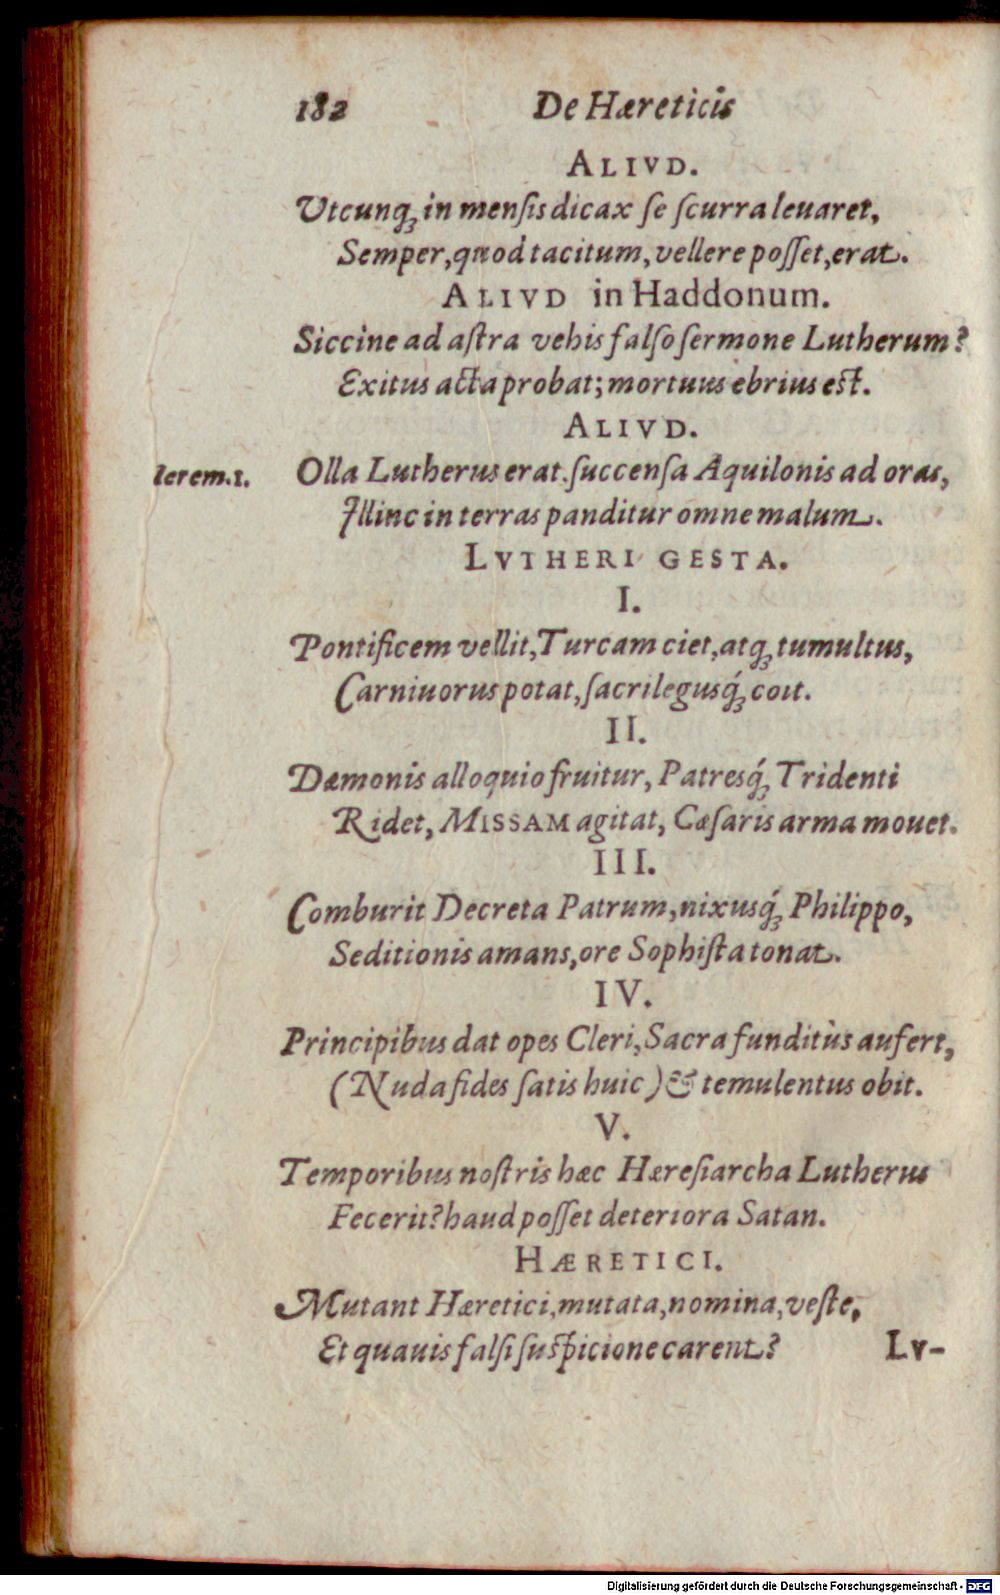 182 De Hæreticis
ALIVD.
Vtcunq́; in mensis dicax se scurra leuaret,
Semper, quod tacitum, vellere posset, erat.
ALIVD in Haddonum.
Siccine ad astra vehis falso sermone Lutherum?
Exitus acta probat; mortuus ebrius est.
ALIVD.
Ierem.1. Olla Lutherus erat. succensa Aquilonis ad oras,
Illinc in terras panditur omne malum.
LVTHERI GESTA.
I.
Pontificem vellit, Turcam ciet, atq; tumultus,
Carniuorus potat, sacrilegusq́; coit.
II.
Dæmonis alloquio fruitur, Patresq́; Tridenti
Ridet, MISSAM agitat, Cæsaris arma mouet.
III.
Comburit Decreta Patrum, nixusq́; Philippo,
Seditionis amans, ore Sophista tonat.
IV.
Principibus dat opes Cleri, Sacra funditùs aufert,
(Nuda fides satis huic) & temulentus obit.
V.
Temporibus nostris hæc Hæresiarcha Lutherus
Fecerit? haud posset deteriora Satan.
HÆRETICI.
Mutant Hæretici, mutata, nomina, veste,
Et quauis falsi suspicione carent?
Lv-
Digitalisierung gefördert durch die Deutsche Forschungsgemeinschaft - DFG